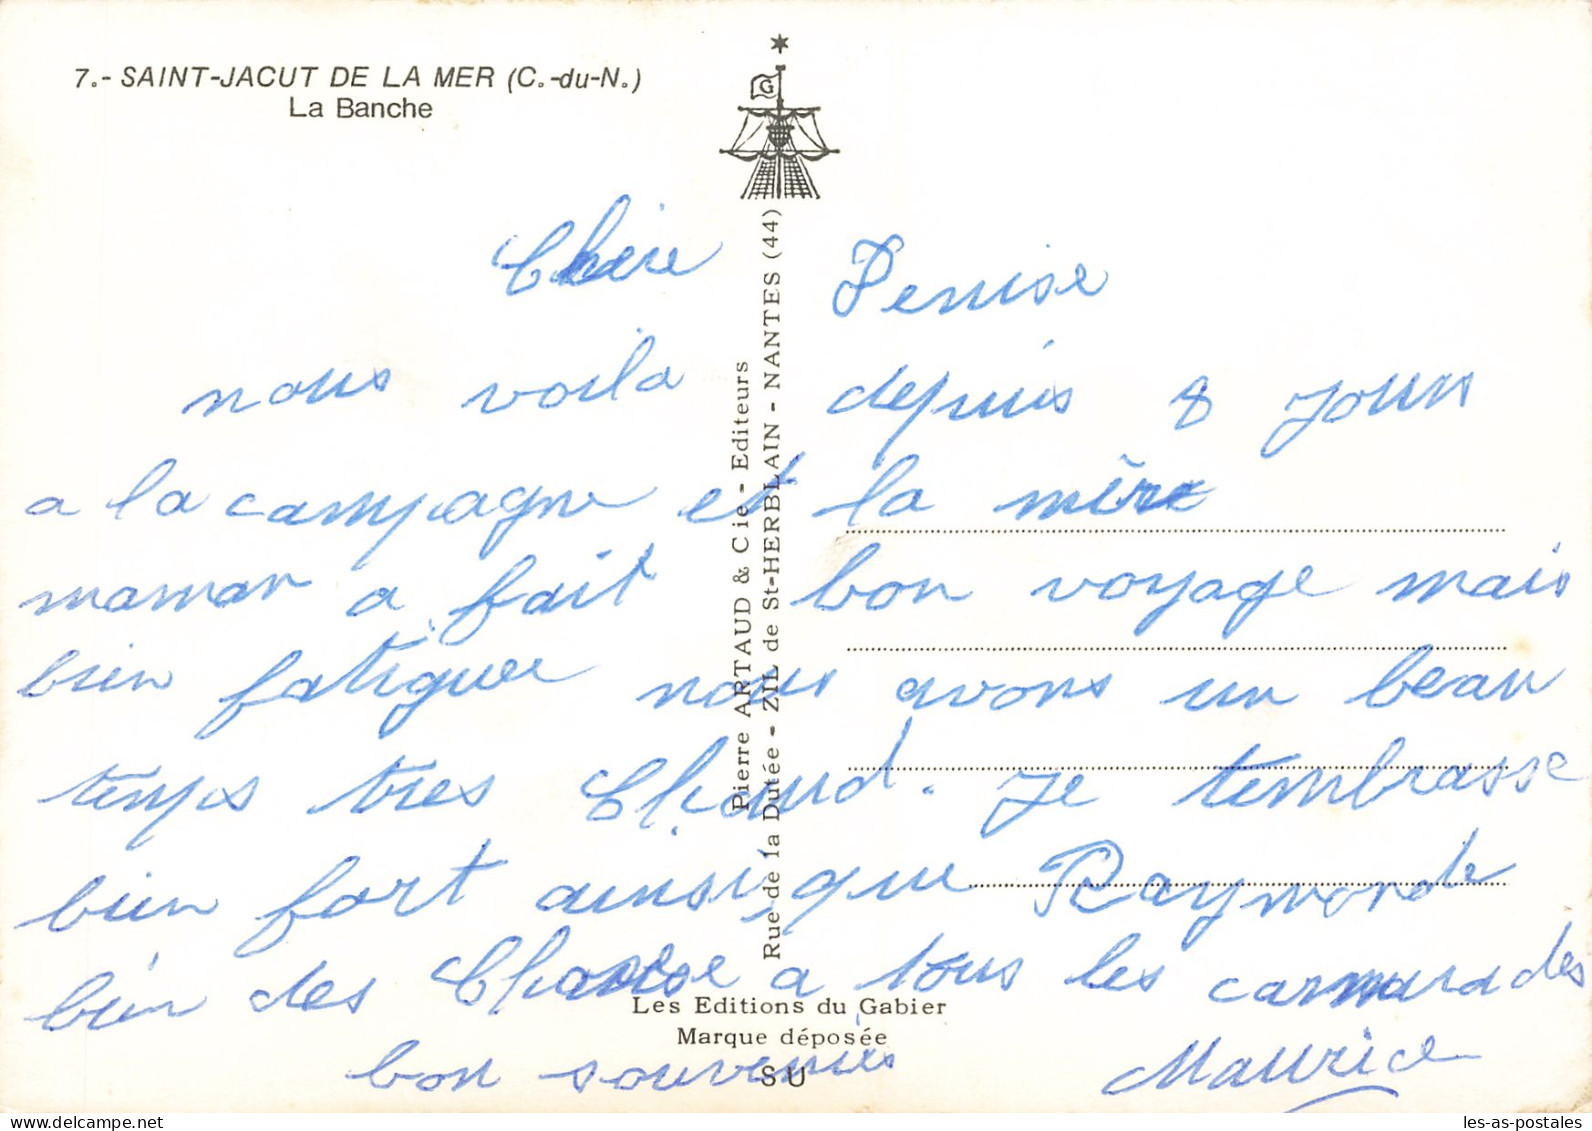 7.- SAINT-JACUT DE LA MER (C.-du-N.)
La Banche
G
Pierre ARTAUD & Cie - Editeurs
Rue de la Dutée - ZIL de St-HERBLAIN - NANTES (44)
Chère Denise
nous voila depuis 8 jours
a la campagne et la mère
maman a fait bon voyage mais
bien fatiguee nous avons un beau
temps tres Chaud. Je tembrasse
bien fort ainsi que Raymonde
bien des Choose a tous les camarades
bon souvenirs Maurice
Les Editions du Gabier
Marque déposée
SU
les-as-postales